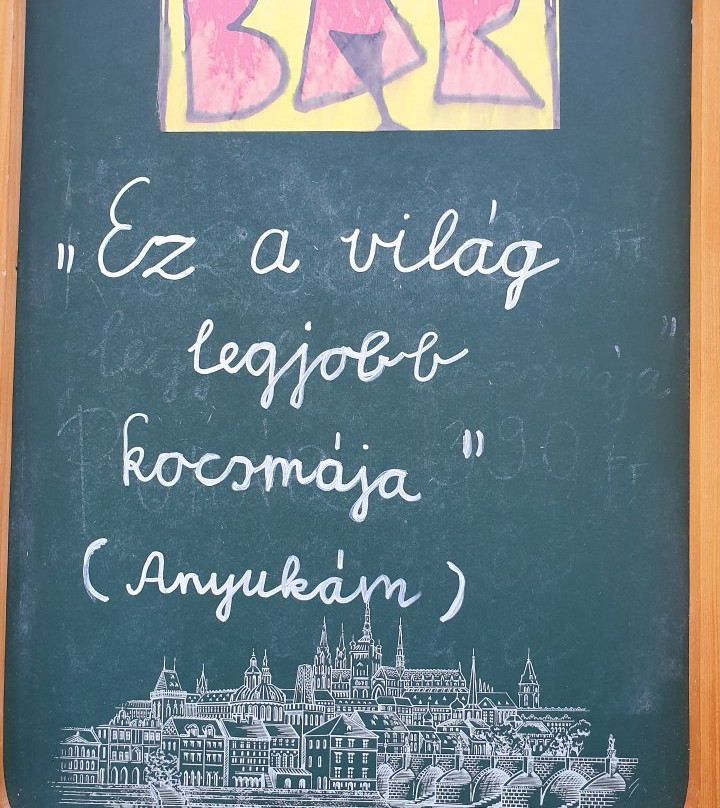 BAR
„Ez a világ
legjobb
kocsmája"
(Anyukám)